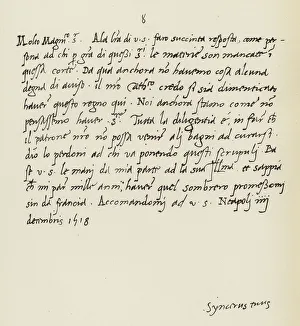 8
Molto Magn.co S.r Ala lra di v.s. faro succinta resposta, come per-
sona ad chi p gra di questi S.ri le materie son mancate i
questa corte. Da qua anchora no havemo cosa alcuna
degna di aviso. il mio credo si sia dimenticato
haver questo regno qui. Noi anchora stamo come no
pensassimo haver S.r Tutta la diligentia e, in far ch
il patrone nro no possa venir ali bagni ad curarsi.
dio lo perdoni ad chi va ponendo questi scrupuli. Ba
se v.s. le mani da mia parte ad la sua Ill.ma. et sappia
ch mi par mille anni, haver quel sombrero promessomi
sin da francia. Accomandomi ad v.s. Neapoli iiij
decembris 1518.
Syncerus tuus